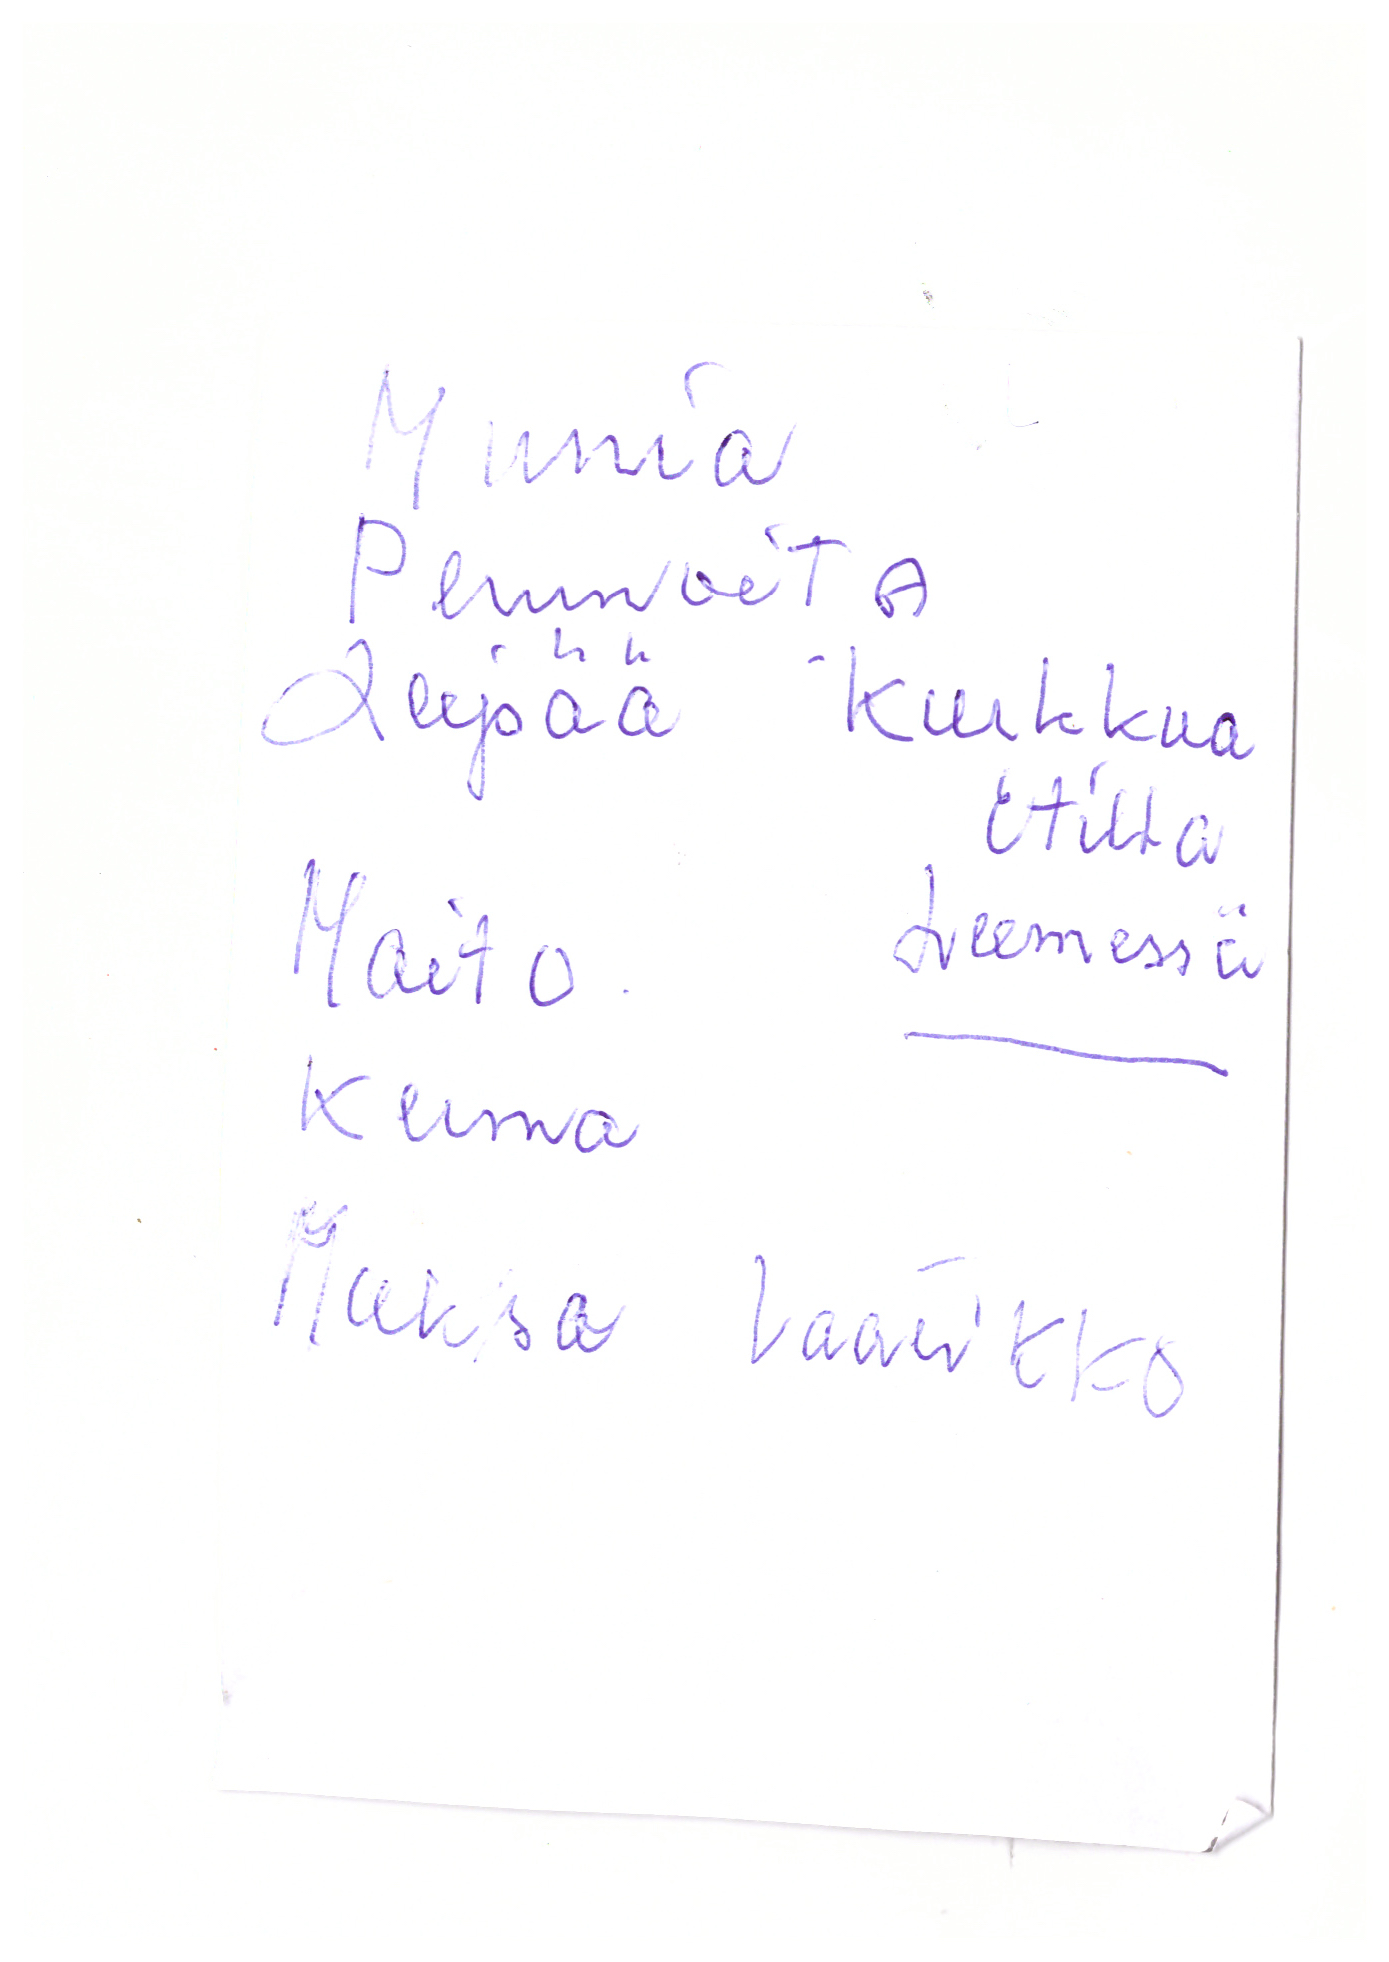 Munia
Perunoita
Leipää - Kurkkua
Etikka
Liemessä
Maito.
Kerma
Maksa laatikko